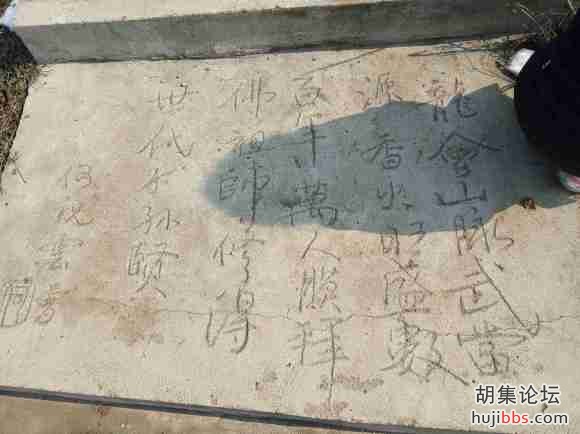 龍會山脉武當
源香火旺盛數
百年萬人膜拜
佛祖師修得
世代子孙賢
何
胡集论坛
hujibbs.com